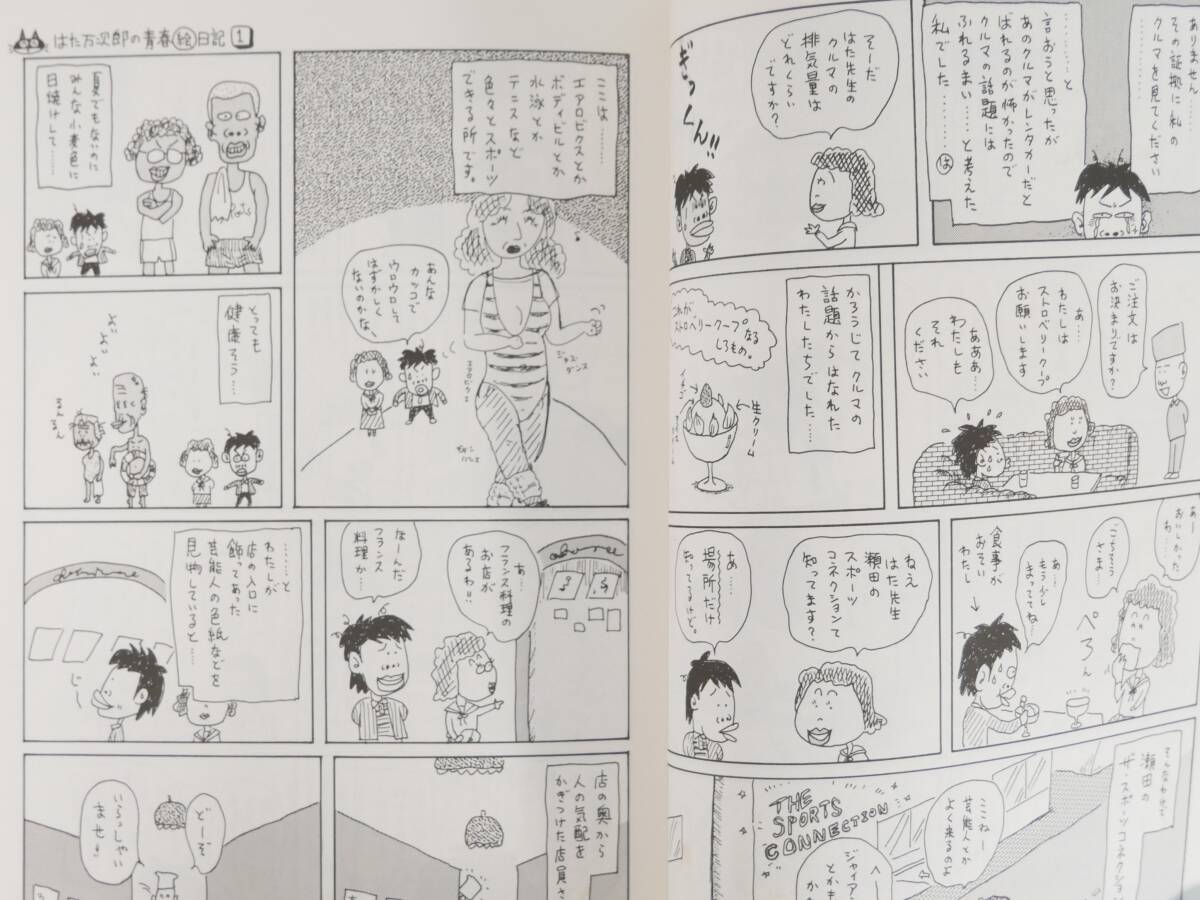 ありません
その証拠に私の
クルマを見てください
…………と
言おうと思ったが
あのクルマがレンタカーだと
ばれるのが怖かったので
クルマの話題には
ふれるまい……と考えた
私でした…………は
そーだ
はた先生の
クルマの
排気量は
どれくらい
ですか?
ぎっくん!!
ご注文は
お決まりですか?
あ…
わたしは
ストロベリークープ
お願いします
あああ…
わたしも
それ
ください
かろうじてクルマの
話題からはなれた
わたしたちでした……
これが
ストロベリークープなる
しろもの。
イチゴ
生クリーム
あー
おいしかった
わ…
ごちそう
さま…
ぺろん
あ…
もう少し
まっててね…
食事が
おそい
わたし
ねえ
はた先生
瀬田の
スポーツ
コネクションて
知ってます?
あ……
場所だけ
知ってるけど。
そんなわけで
瀬田の
ザ・スポーツコネクション
THE
SPORTS
CONNECTION
ここねー
芸能人とか
よく来るのよ
へー
ジャイア
とかも
はた万次郎の青春絵日記 1
ここは………
エアロビクスとか
ボディビルとか
水泳とか
テニスなど
色々とスポーツ
できる所です。
あんな
カッコで
ウロウロして
はずかしく
ないのかな、
ジャズ
ダンス
エアロビクス
モダン
バレエ
夏でもないのに
みんな小麦色に
日焼けして……
とっても
健康そう…
よい
よい
よい
るんるん
あ…
フランス料理の
お店が
あるわ!!
なーんだ
フランス
料理か…
………と
わたしが
店の入口に
飾ってあった
芸能人の色紙などを
見物していると……
じー
店の奥から
人の気配を
かぎつけた店員さ
どーぞ
いらっしゃい
ませ!!